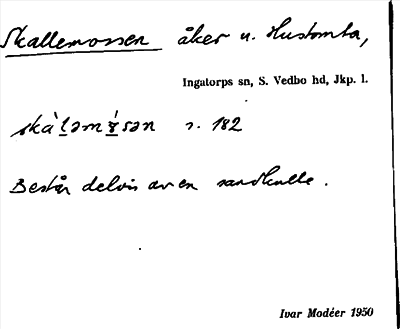 Skallemossen åker u. Hustomta,
Ingatorps sn, S. Vedbo hd, Jkp. l.
s. 182
Består delvis av en sandkulle.
Ivar Modéer 1950